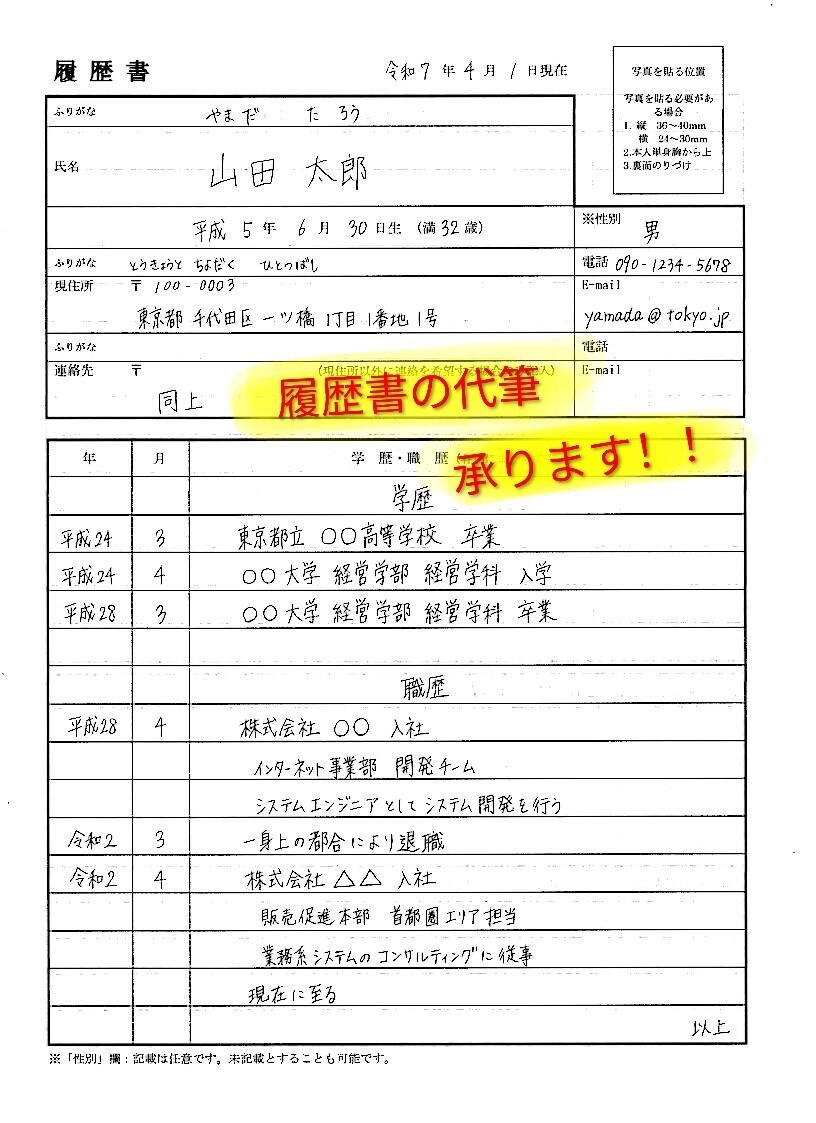 履歴書
令和7年4月1日現在
写真を貼る位置
写真を貼る必要があ
る場合
1. 縦 36～40mm
横 24～30mm
2.本人単身胸から上
3.裏面のりづけ
ふりがな やまだ たろう
氏名 山田 太郎
平成 5年 6月 30日生 (満32歳)
※性別 男
ふりがな とうきょうと ちよだく ひとつばし
電話 090-1234-5678
現住所 〒100-0003
東京都 千代田区 一ツ橋 1丁目 1番地 1号
E-mail
yamada@tokyo.jp
ふりがな
電話
連絡先 〒 (現住所以外に連絡を希望する場合のみ記入)
E-mail
同上
履歴書の代筆
承ります！！
年 月 学歴・職歴
学歴
平成24 3 東京都立 〇〇高等学校 卒業
平成24 4 〇〇大学 経営学部 経営学科 入学
平成28 3 〇〇大学 経営学部 経営学科 卒業
職歴
平成28 4 株式会社 〇〇 入社
インターネット事業部 開発チーム
システムエンジニアとしてシステム開発を行う
令和2 3 一身上の都合により退職
令和2 4 株式会社 △△ 入社
販売促進本部 首都圏エリア担当
業務系システムのコンサルティングに従事
現在に至る
以上
※「性別」欄：記載は任意です。未記載とすることも可能です。